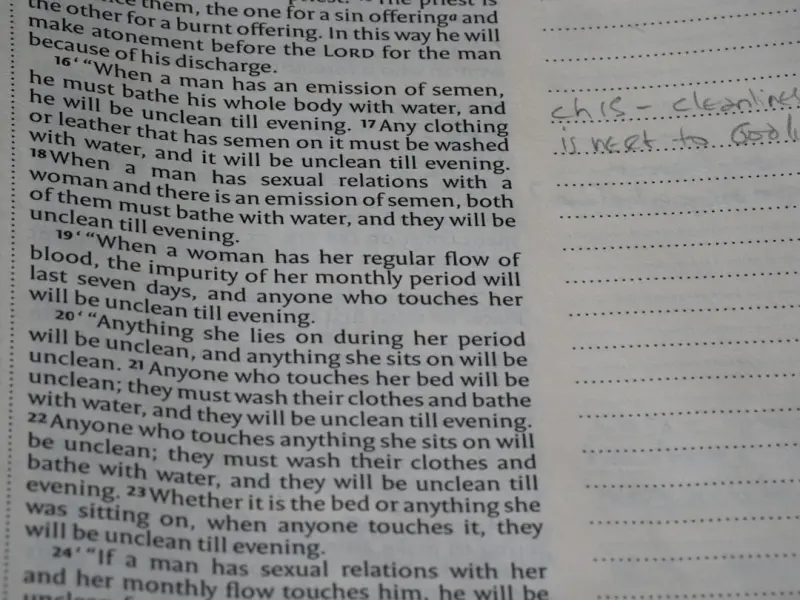 them, the one for a sin offeringᵃ and
the other for a burnt offering. In this way he will
make atonement before the LORD for the man
because of his discharge.
16‘ “When a man has an emission of semen,
he must bathe his whole body with water, and
he will be unclean till evening. 17 Any clothing
or leather that has semen on it must be washed
with water, and it will be unclean till evening.
18 When a man has sexual relations with a
woman and there is an emission of semen, both
of them must bathe with water, and they will be
unclean till evening.
19‘ “When a woman has her regular flow of
blood, the impurity of her monthly period will
last seven days, and anyone who touches her
will be unclean till evening.
20‘ “Anything she lies on during her period
will be unclean, and anything she sits on will be
unclean. 21 Anyone who touches her bed will be
unclean; they must wash their clothes and bathe
with water, and they will be unclean till evening.
22 Anyone who touches anything she sits on will
be unclean; they must wash their clothes and
bathe with water, and they will be unclean till
evening. 23 Whether it is the bed or anything she
was sitting on, when anyone touches it, they
will be unclean till evening.
24‘ “If a man has sexual relations with her
and her monthly flow touches him, he will be
ch 15 - cleanliness
is next to Godli